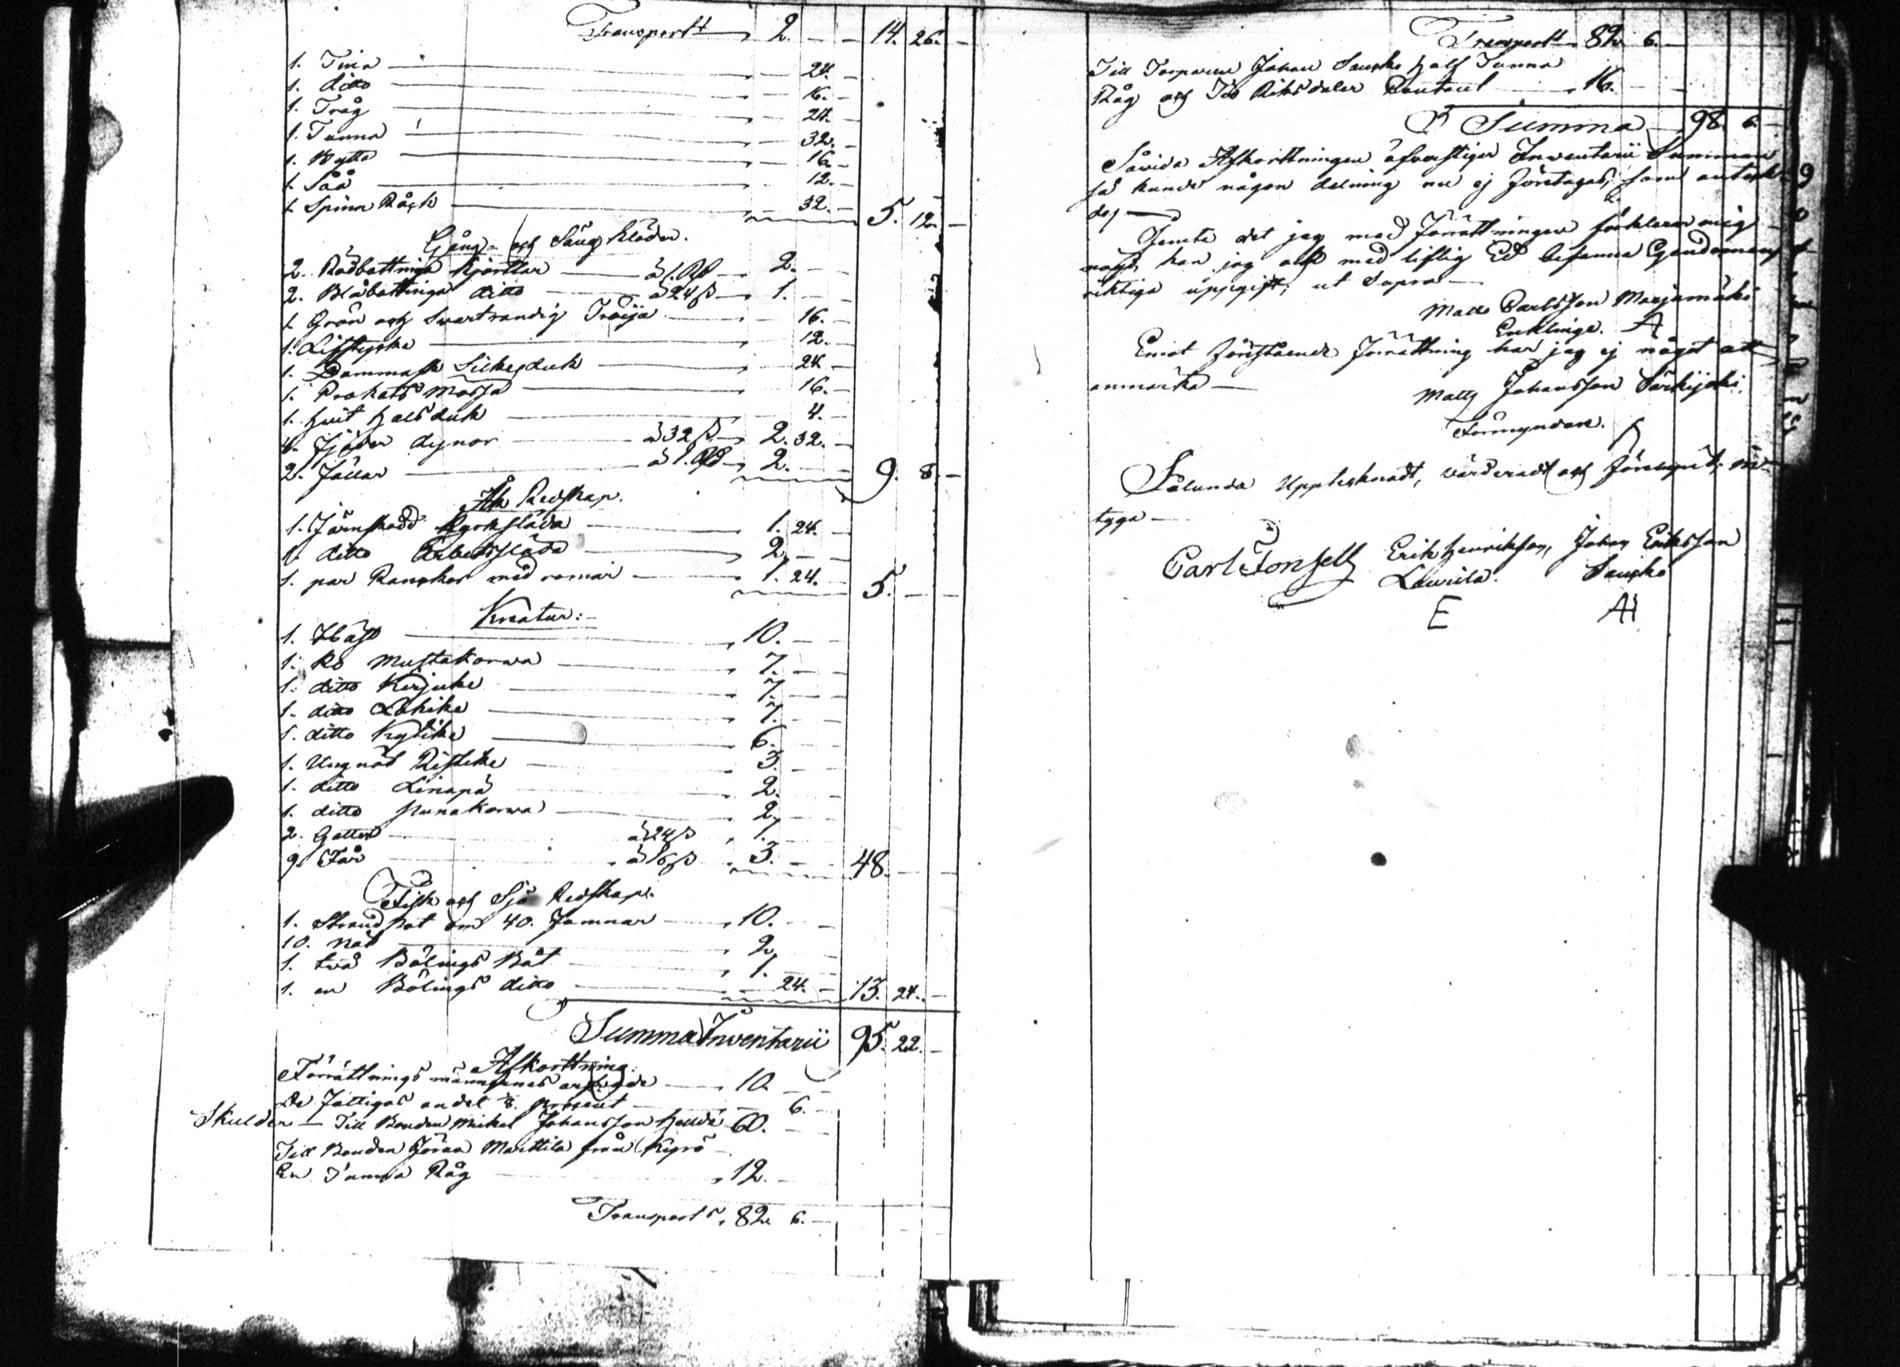 Transport 2. — 14. 26. —
1. Tina — 24. —
1. ditto — 16. —
1. Tråg — 24. —
1. Tunna — 32. —
1. Bytta — 16. —
1. Såå — 12. —
1. Spinn Råck — 32. — 5. 12. —
Gång- och Säng kläder.
2. Rödbottniga kjortlar — à 1. Rd — 2. —
2. Blåbottniga ditto — à 24 ß — 1. —
1. Grön och Svartrandig Tröija — 16. —
1. Lifstycke — 12. —
1. Dammask Silkesduk — 24
1. Prokats Mössa — 16. —
1. hvit halsduk — 4. —
4. Fjäder dynor — à 32 ß — 2. 32. —
2. Fällar — à 1. Rd — 2. — 9. 8. —
Åk Redskap.
1. Järnskodd Kyrksläda — 1. 24. —
1. ditto Arbetssläda — 2. —
1. par med — 1. 24. — 5. —
Kreatur:
1. Häst — 10. —
1. Ko Mustakorwa — 7. —
1. ditto Kirjicke — 7. —
1. ditto — 7. —
1. ditto — 6. —
1. Ungnöt — 3. —
1. ditto Linapä — 2. —
1. ditto Punakorwa — 2. —
2. — à 24 ß — 1. —
9. Får — à 16 ß — 3. — 48. —
Fisk och Sjö Redskap.
1. Strand Not om 40. Famnar — 10. —
10. Nät — 2. —
1. två Bölings Båt — 1. —
1. en Bölings ditto — 24. — 13. 24. —
Summa Inventarii 95. 22. —
Afkorttning.
Förrättnings männernes — 10. —
De Fattigas andel — 6. —
Skulder — Till Bonden Michel Johansson 60. —
Till Bonden Göran Marttila från Kyrö
En Tunna Råg — 12. —
Transport, 82. 6. —
Transport 82. 6. —
Till Torparen Johan Sauko half Tunna
Råg och Tio Riksdaler — 16. —
Summa — 98. 6. —
Såvida Afkorttningen öfverstiger Inventarii Summan
så kunde någon delning nu ej företagas, som
des —
Jemte det jag med förrättningen förklarar mig
nöjd, kan jag med liflig Ed Egendomens
riktiga uppgift, ut Supra —
Matts Carlsson Marjamäki
A
Emot förestående förrättning har jag ej något att
anmärka —
Matts Johansson Särkijoki
Förmyndare.
Sålunda Upptecknadt, värderadt och förelupit,
tyga —
Carl Erik Henriksson, Johan Eriksson
Laurila. Sauko
E A